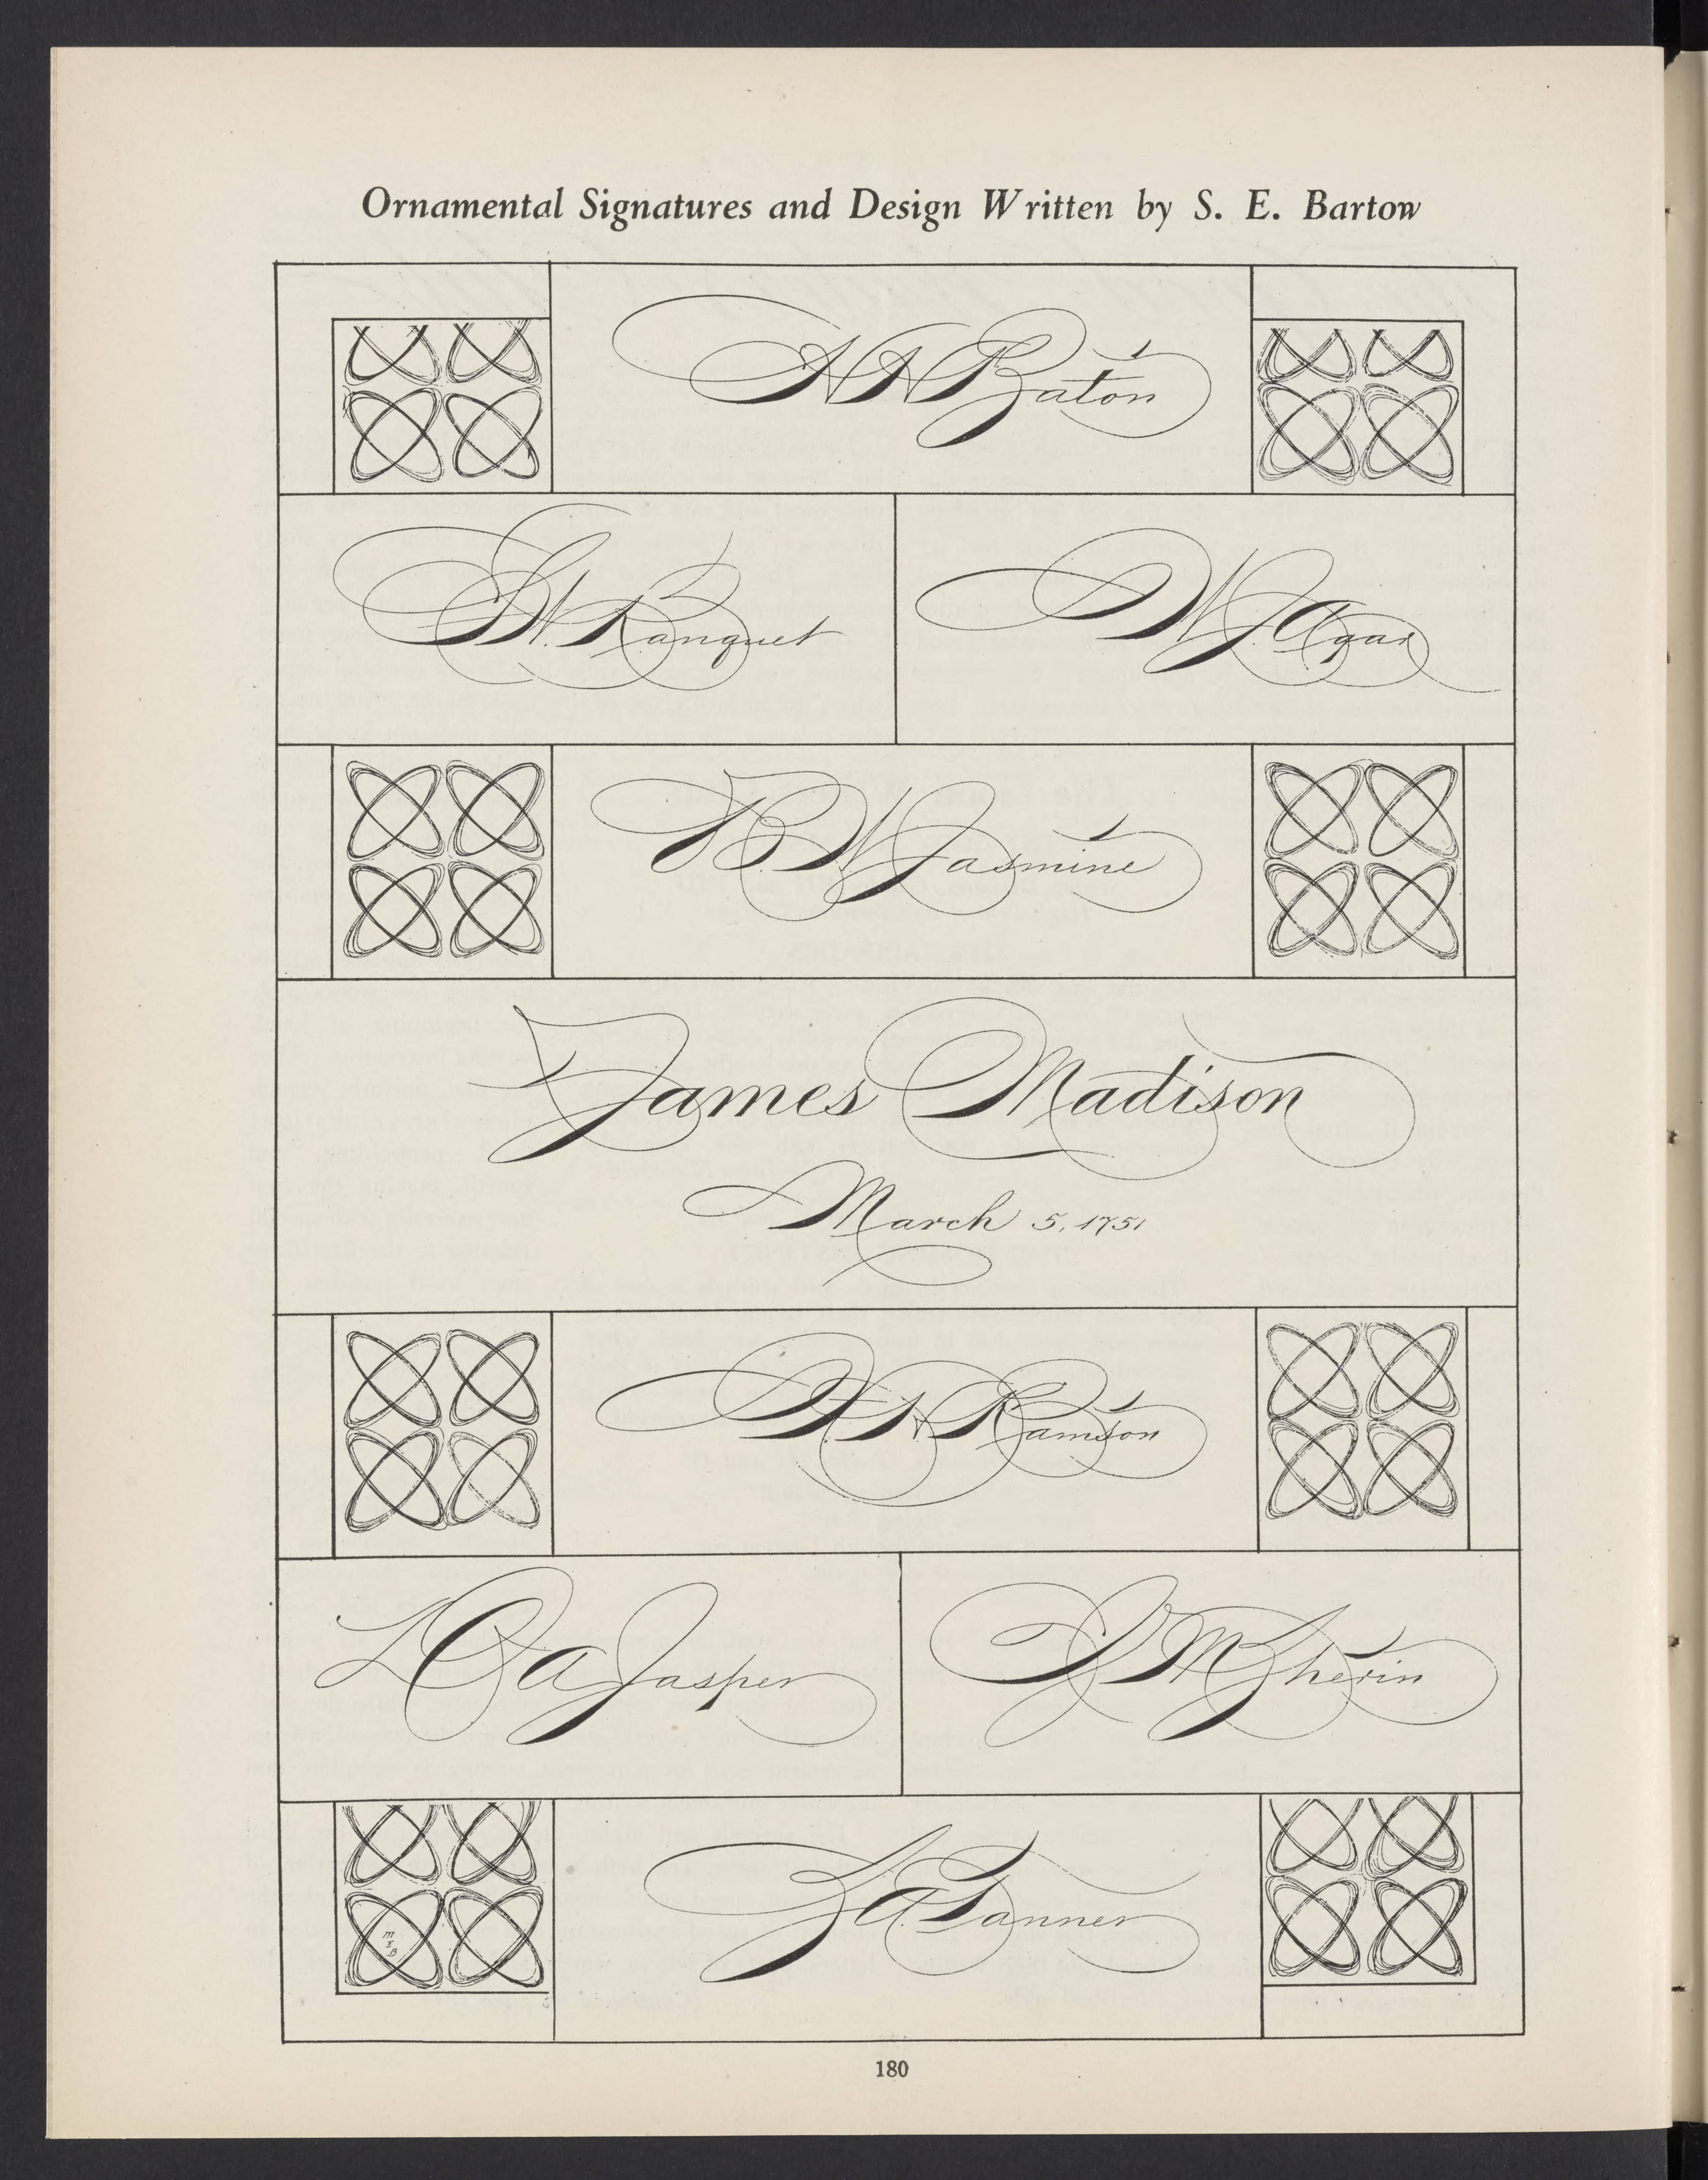 Ornamental Signatures and Design Written by S. E. Bartow
H N Baton
G. W. Ranquet
W J Agar
F. B. W Jasmine
James Madison
March 5, 1751
H. N. Ramson
L O a Jasper
J M Sherin
Z A. Tanner
M
E
B
180